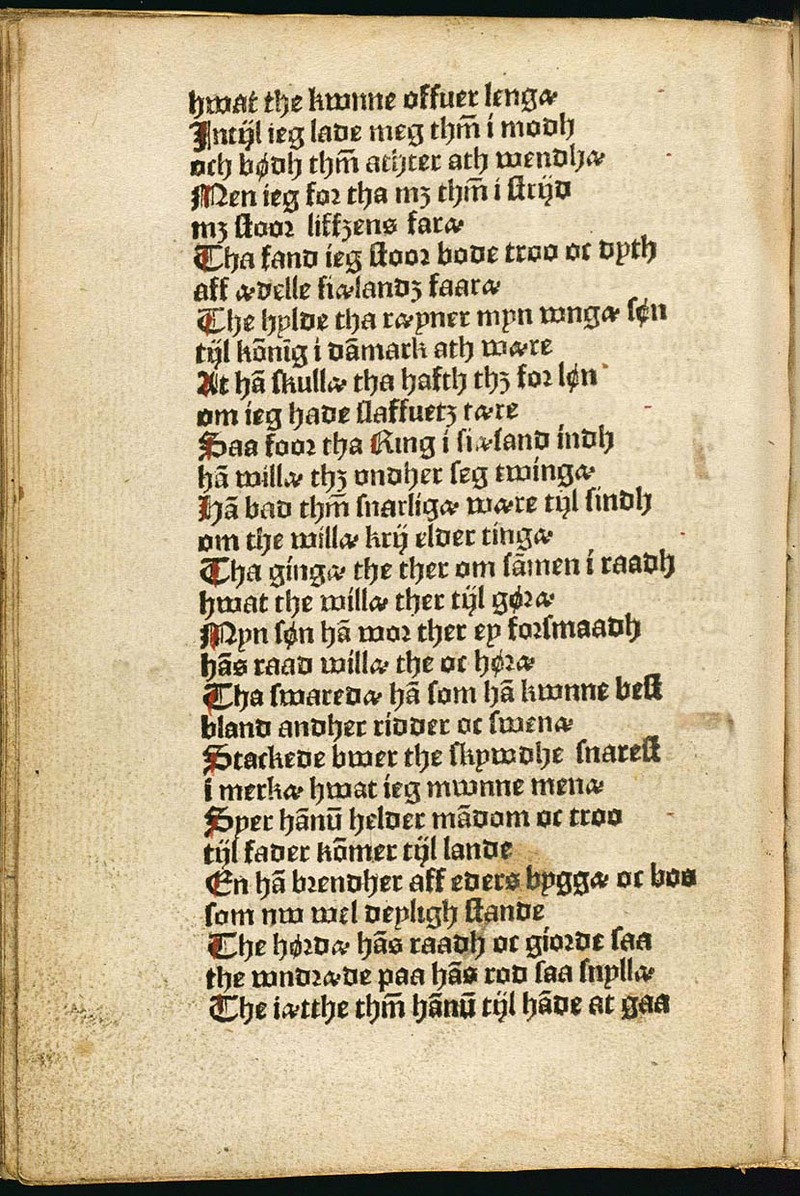 hwat the kwnne offuer lengæ
Intijl ieg lade meg thm̄ i modh
och bødh thm̄ achter ath wendhæ
Men ieg for tha mꝫ thm̄ i strijd
mꝫ stoor liffzens faræ
Tha fand ieg stoor bode troo oc dyth
aff ædelle siælandꝫ faaræ
The hylde tha ræyner myn wngæ søn
tijl kōnīg i dāmark ath wære
At hā skullæ tha hafth thꝫ for løn
om ieg hade staffuetꝫ tære
Saa foor tha King i siæland indh
hā willæ thꝫ vndher seg twingæ
Hā bad thm̄ snarligæ wære tijl sindh
om the willæ krij elder tingæ
Tha gingæ the ther om sāmen i raadh
hwat the willæ ther tijl gøræ
Myn søn hā wor ther ey forsmaadh
hās raad willæ the oc høræ
Tha swaredæ hā som hā kwnne best
bland andher ridder oc swenæ
Stackede bwer the skywdhe snarest
i merkæ hwat ieg mwnne menæ
Syer hānū helder mādom oc troo
tijl fader kōmer tijl lande
En hā brendher aff eders byggæ oc boo
som nw wel deyligh stande
The hørdæ hās raadh oc giorde saa
the wndræde paa hās rod saa snyllæ
The iætthe thm̄ hānū tijl hāde at gaa